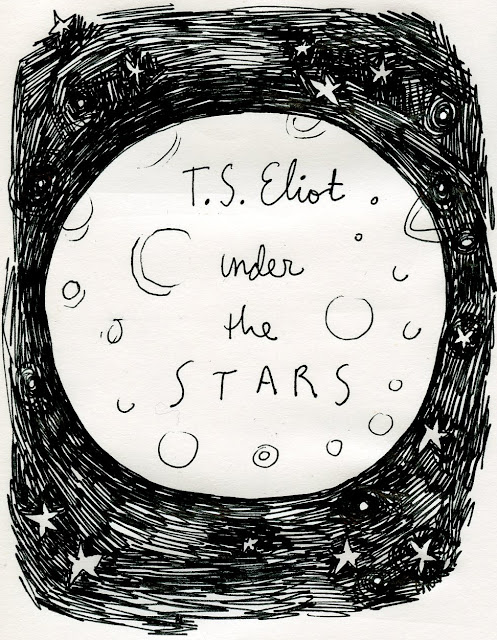 T.S. Eliot
under
the
STARS